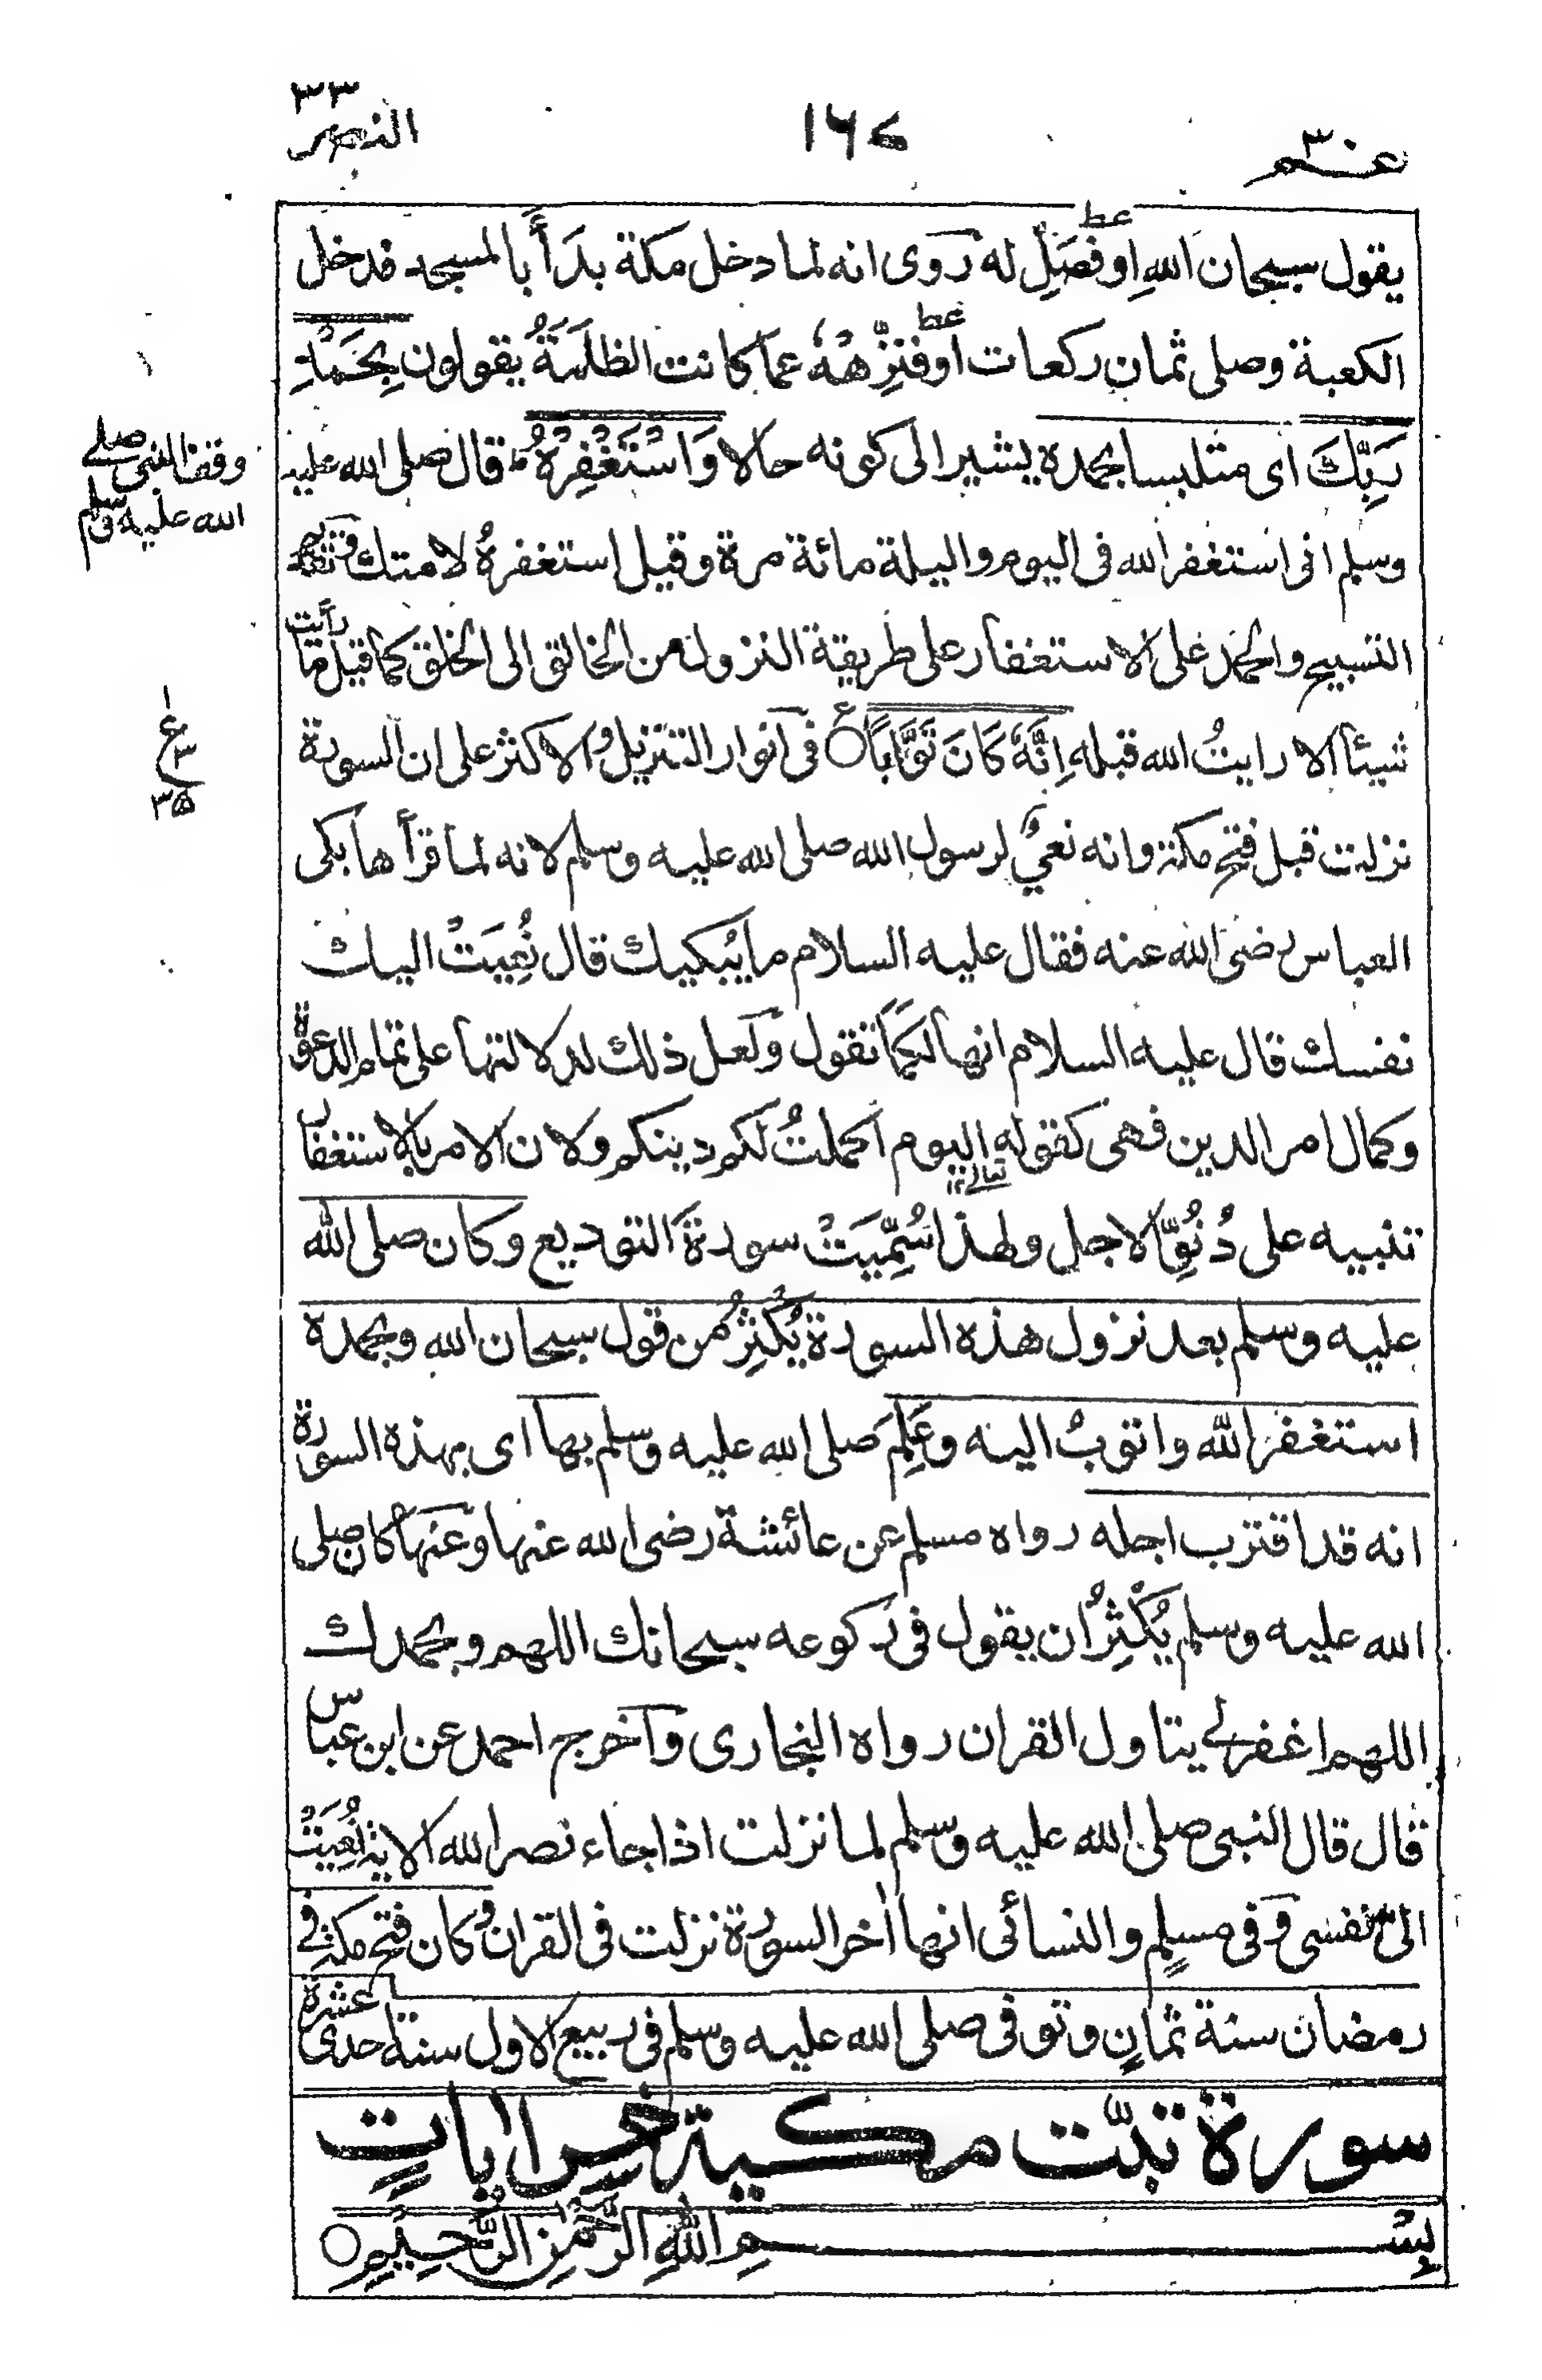 عم ٣٠
١٦٧
النصر
٣٣
يقول سبحان اللهِ اوفَصَلِّ له رَوى انه لما دخل مكة بدَأَ بالمسجد فدخل
الكعبة وصلى ثمان ركعات اوفنزِّهْهُ عما كانت الظلَمَةُ يقولون بِحَمْدِ
رَبِّكَ اى متلبسا بحمده يشير الى كونه حالا وَاسْتَغْفِرْهُ ط قال صلى الله عليه
وسلم انى استغفر الله فى اليوم والليلة مائة مرة وقيل استغفرهُ لامتك وتقديم
التسبيح والحمد على الاستغفار على طريقة النزول من الخالق الى الخلق كما قيل ما رأيت
شيئا الا رايتُ الله قبله اِنَّهٗ كَانَ تَوَّابًا ○ ع فى انوار التنزيل والاكثر على ان السورة
نزلت قبل فتح مكة وانه نعىٌ لرسول الله صلى الله عليه وسلم لانه لما قرأها بكى
العباس رضى الله عنه فقال عليه السلام ما يُبكيك قال نُعِيَتْ اليك
نفسك قال عليه السلام انها لكما تقول ولَعل ذلك لدلالتها على تمام الدعوة
وكمال امر الدين فهى كقوله تعالى١٢ اليوم اكملتُ لكم دينكم ولان الامر بالاستغفار
تنبيه على دُنُوِّ الاجل ولهذا سُمِّيَتْ سورةَ التوديع وكان صلى الله
عليه وسلم بعد نزول هذه السورة يُكْثِرُ من قول سبحان الله وبحمده
استغفر الله واتوبُ اليه وعَلِمَ صلى الله عليه وسلم بها اى بهذه السورة
انه قد اقترب اجله رواه مسلم عن عائشة رضى الله عنها وعنها كان صلى
الله عليه وسلم يُكْثِرُ ان يقول فى ركوعه سبحانك اللهم وبحمدك
اللهم اغفرلى يتاول القران رواه البخارى واخرج احمد عن ابن عباس
قال قال النبى صلى الله عليه وسلم لما نزلت اذا جاء نصر الله الاية نُعِيَتْ
الىَّ نفسى وفى مسلمٍ والنسائى انها اٰخر السورة نزلت فى القران وكان فتح مكة فى
رمضان سنة ثمانٍ وتوفى صلى الله عليه وسلم فى ربيع الاول سنة احدى عشرة
سورة تبّت مكية خمس اياتٍ
بِسْمِ اللهِ الرَّحْمٰنِ الرَّحِيْمِ ○
وقف النبى صلى
الله عليه وسلم
ع
٣
٣٥